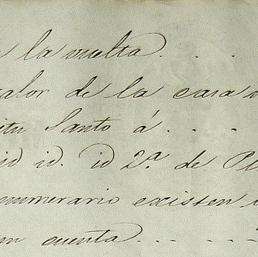 la vuelta . . . .
valor de la casa
Santo á . . .
id. id 2.ª de
numerario existen
en cuenta . . . . .